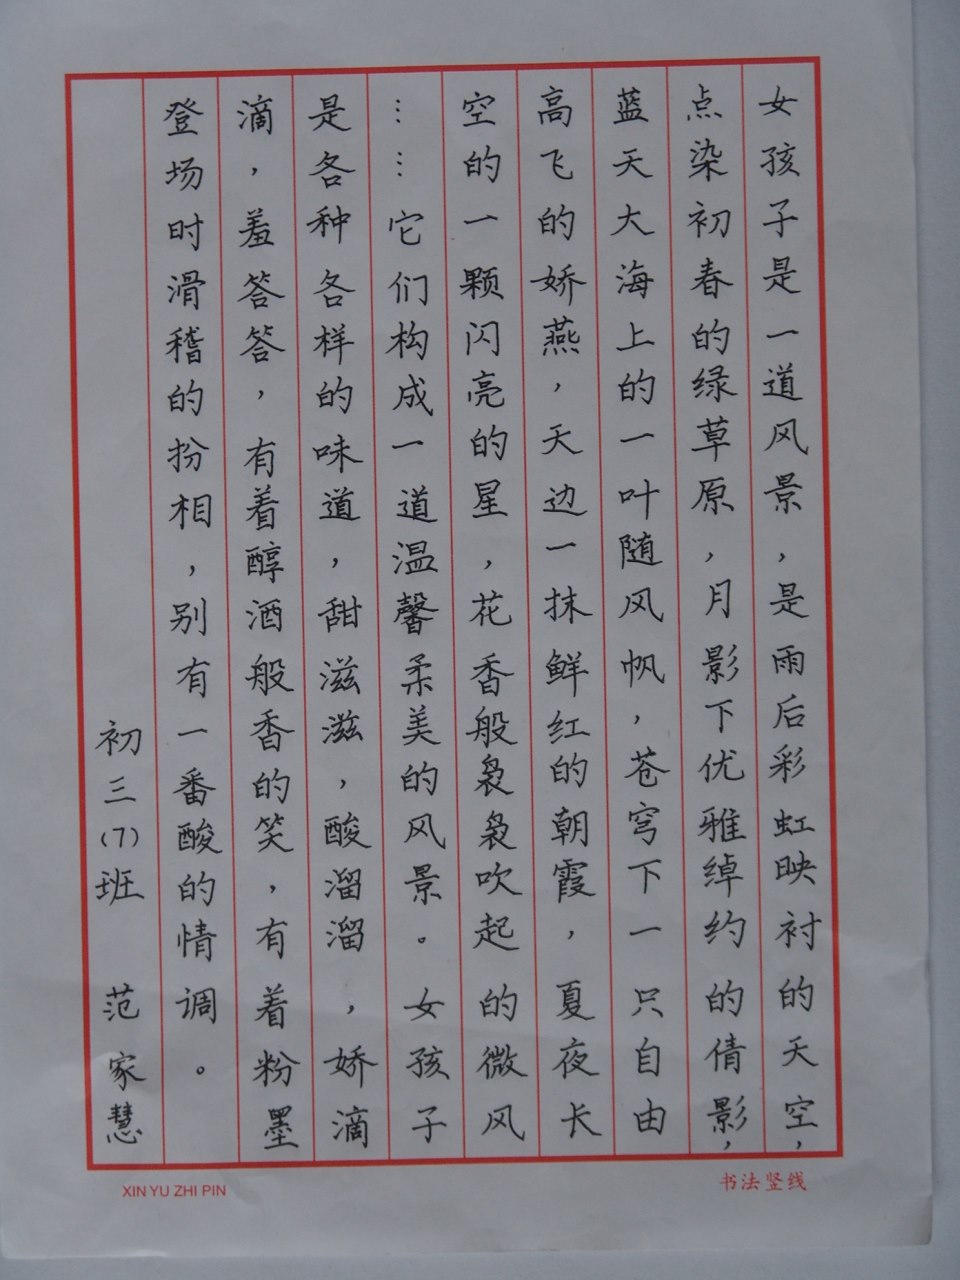 女孩子是一道风景，是雨后彩虹映衬的天空，
点染初春的绿草原，月影下优雅绰约的倩影，
蓝天大海上的一叶随风帆，苍穹下一只自由
高飞的娇燕，天边一抹鲜红的朝霞，夏夜长
空的一颗闪亮的星，花香般袅袅吹起的微风
……它们构成一道温馨柔美的风景。女孩子
是各种各样的味道，甜滋滋，酸溜溜，娇滴
滴，羞答答，有着醇酒般香的笑，有着粉墨
登场时滑稽的扮相，别有一番酸的情调。
初三(7)班 范家慧
XIN YU ZHI PIN
书法竖线